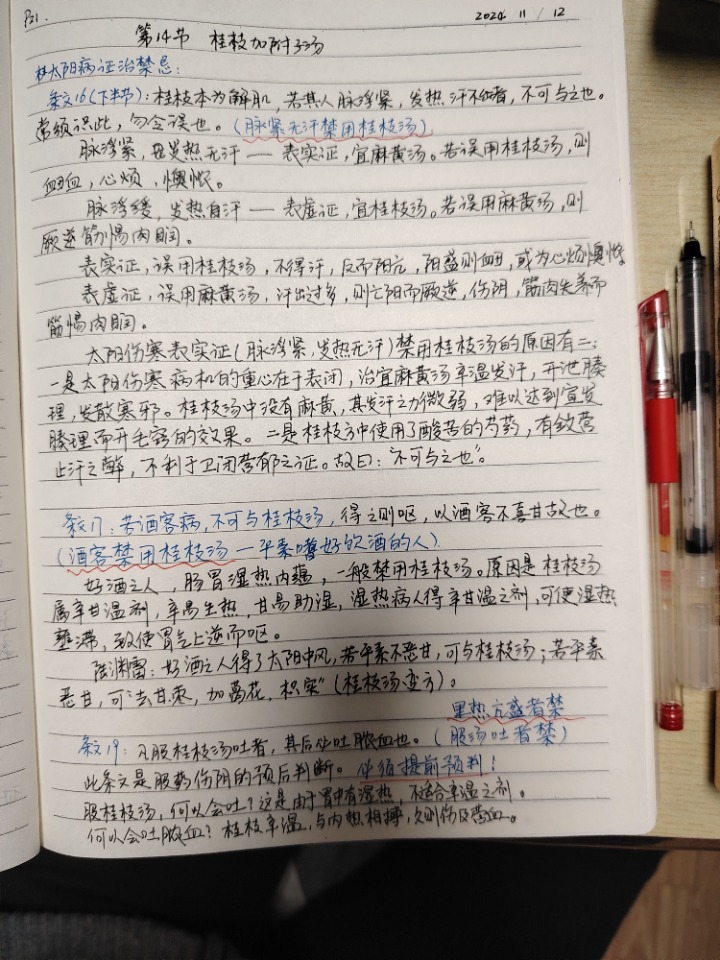 P21.
2024 11 / 12
第14节 桂枝加附子汤
太阳病证治禁忌：
条文16(下半节)：桂枝本为解肌，若其人脉浮紧，发热汗不出者，不可与之也。
常须识此，勿令误也。(脉紧无汗禁用桂枝汤)
脉浮紧，发热无汗 — 表实证，宜麻黄汤。若误用桂枝汤，则
衄血，心烦，懊憹。
脉浮缓，发热自汗 — 表虚证，宜桂枝汤。若误用麻黄汤，则
厥逆筋惕肉瞤。
表实证，误用桂枝汤，不得汗，反而阳亢，阳盛则衄，或为心烦懊憹
表虚证，误用麻黄汤，汗出过多，则亡阳而厥逆，伤阴，筋肉失养而
筋惕肉瞤。
太阳伤寒表实证(脉浮紧，发热无汗)禁用桂枝汤的原因有二：
一是太阳伤寒病机的重心在于表闭，治宜麻黄汤辛温发汗，开泄腠
理，发散寒邪。桂枝汤中没有麻黄，其发汗之力微弱，难以达到宣发
腠理而开毛窍的效果。二是桂枝方中使用了酸苦的芍药，有敛营
止汗之弊，不利于卫闭营郁之证。故曰："不可与之也"。
条文17：若酒客病，不可与桂枝汤，得之则呕，以酒客不喜甘故也。
(酒客禁用桂枝汤 — 平素嗜好饮酒的人)
好酒之人，肠胃湿热内蕴，一般禁用桂枝汤。原因是桂枝汤
属辛甘温剂，辛易生热，甘易助湿，湿热病人得辛甘温之剂，可使湿热
壅滞，致使胃气上逆而呕。
陆渊雷：好酒之人得了太阳中风，若平素不恶甘，可与桂枝汤；若平素
恶甘，可去甘枣，加葛花、枳实"(桂枝汤变方)。
里热亢盛者禁
条文19：凡服桂枝汤吐者，其后必吐脓血也。(服汤吐者禁)
此条文是服药伤阴的预后判断。必须提前预判！
服桂枝汤，何以会吐？这是由于胃中有湿热，不适合辛温之剂。
何以会吐脓血？桂枝辛温，与内热相搏，久则伤及营血。